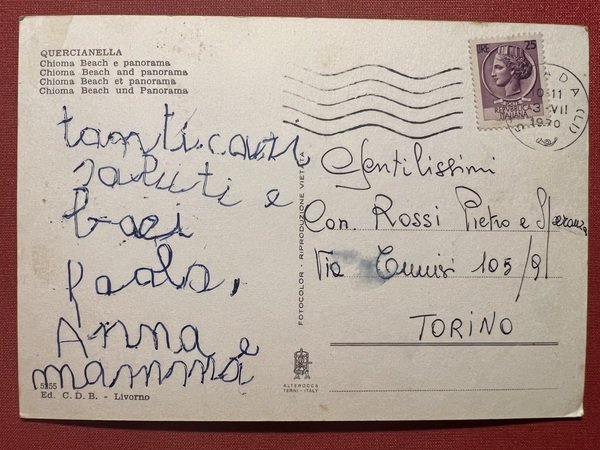 QUERCIANELLA
Chioma Beach e panorama
Chioma Beach and panorama
Chioma Beach et panorama
Chioma Beach und Panorama
tanti cari
saluti e
baci
paola,
Anna e
mamma
5255
Ed. C. D. B. - Livorno
FOTOCOLOR - RIPRODUZIONE VIETATA
ALTEROCCA
TERNI - ITALY
LIRE 25
POSTE
REPUBBLICA
ITALIANA
NDA (LI)
0-11
3 VII
1970
Gentilissimi
Con. Rossi Pietro e Speranza
Via Tunisi 105/9
TORINO